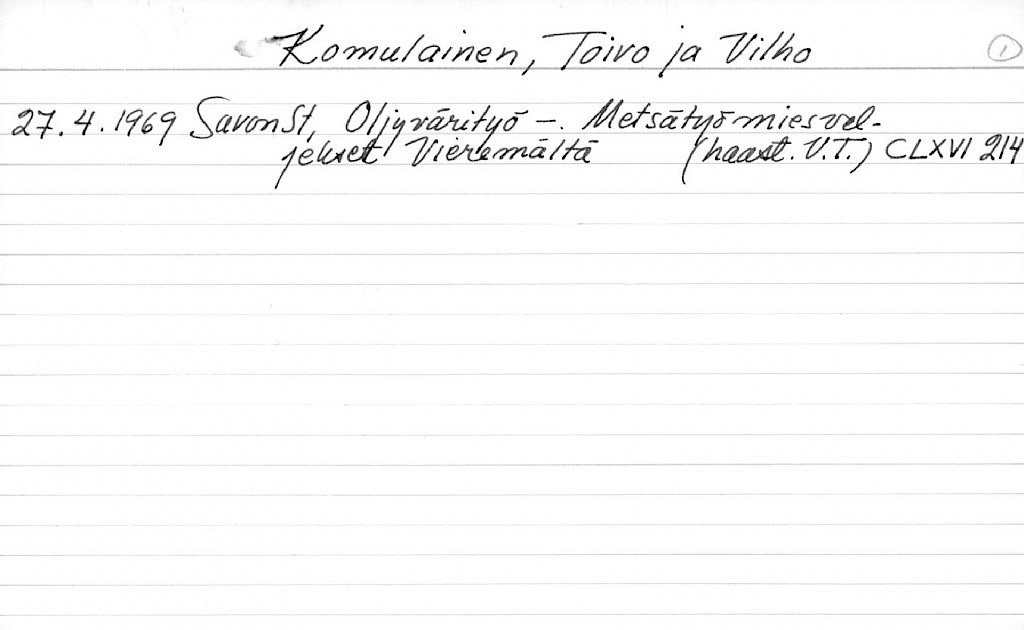 Komulainen, Toivo ja Vilho 1
27.4.1969 SavonSt, Öljyvärityö –. Metsätyömiesvel-
jekset Vieremältä (haast. V.T.) CLXVI 214